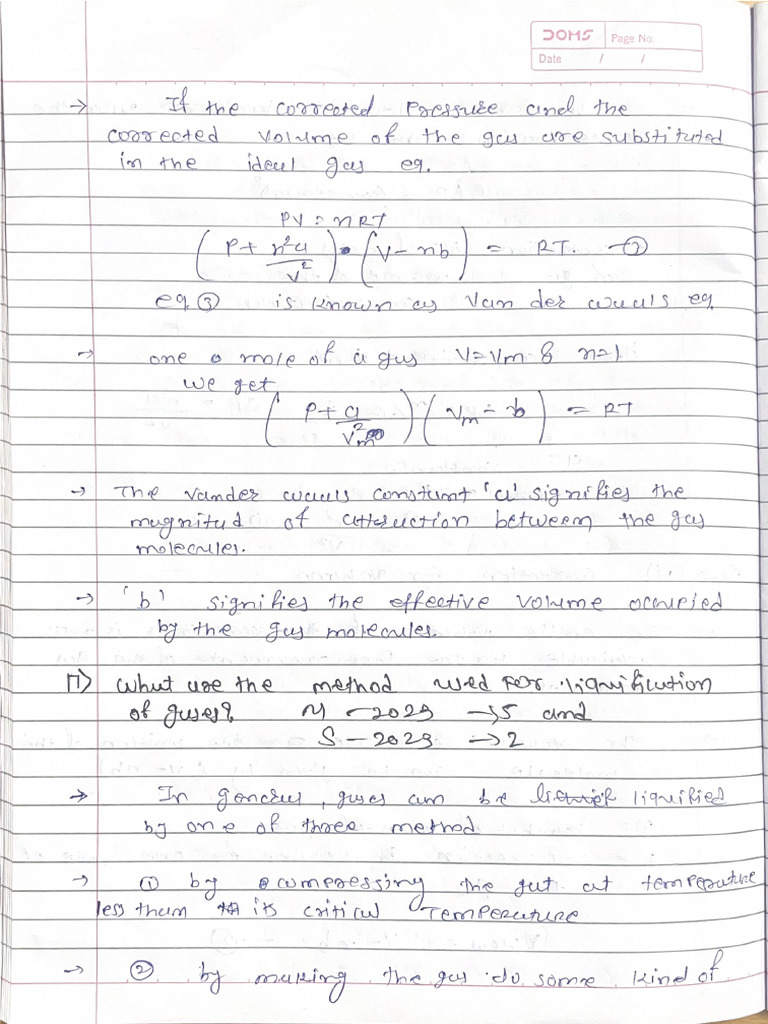 DOMS Page No.
Date / /
→ If the corrected Pressure and the
corrected volume of the gas are substituted
in the ideal gas eq.
PV = nRT
(P + n²a/V²) • (V - nb) = RT. — ③
eq ③ is known as Van der waals eq.
→ one mole of a gas V=Vm & n=1
we get
(P + a/Vm²) (Vm - b) = RT
→ The vander waals constant 'a' signifies the
magnitud of attraction between the gas
molecules.
→ 'b' signifies the effective volume occupied
by the gas molecules.
17) What are the method used FOR liquification
of gases? - 2023 → 5 and
S - 2023 → 2
→ In , gases can be liquified
by one of three method
→ ① by compressing the gas at temperature
less than its critical Temperature
→ ② by making the gas do some kind of